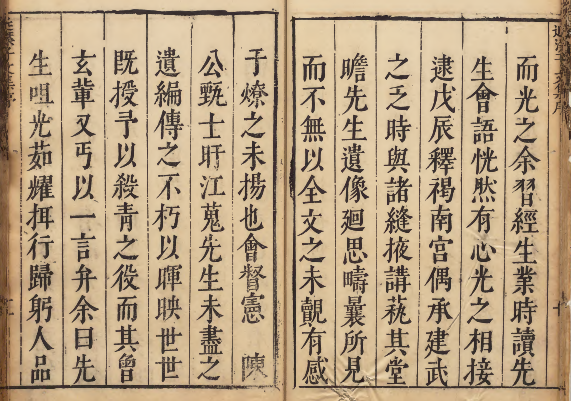 而光之余習經生業時讀先
生會語恍然有心光之相接
逮戊辰釋褐南宮偶承建武
之乏時與諸縫掖講蓺其堂
瞻先生遺像迴思疇曩所見
而不無以全文之未覿有感
于燎之未揚也會督憲 陳
公甄士旴江蒐先生未盡之
遺編傳之不朽以暉映世世
既授予以殺青之役而其曾
玄輩又丐以一言弁余曰先
生咀光茹耀挕行歸躬人品